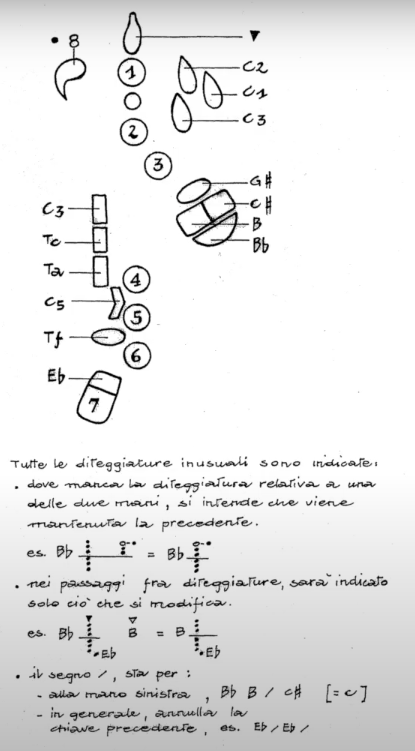 • 8
▼
C2
1
C1
C3
2
3
G#
C3
C#
B
Tc
Bb
Ta
4
C5
5
Tf
6
Eb
7
Tutte le diteggiature inusuali sono indicate:
• dove manca la diteggiatura relativa a una
delle due mani, si intende che viene
mantenuta la precedente.
es. Bb = Bb
• nei passaggi fra diteggiature, sarà indicato
solo ciò che si modifica.
es. Bb ▼ •Eb ▽ B = B •Eb
• il segno /, sta per:
- alla mano sinistra, Bb B / C# [= C]
- in generale, annulla la
chiave precedente, es. Eb / Eb /